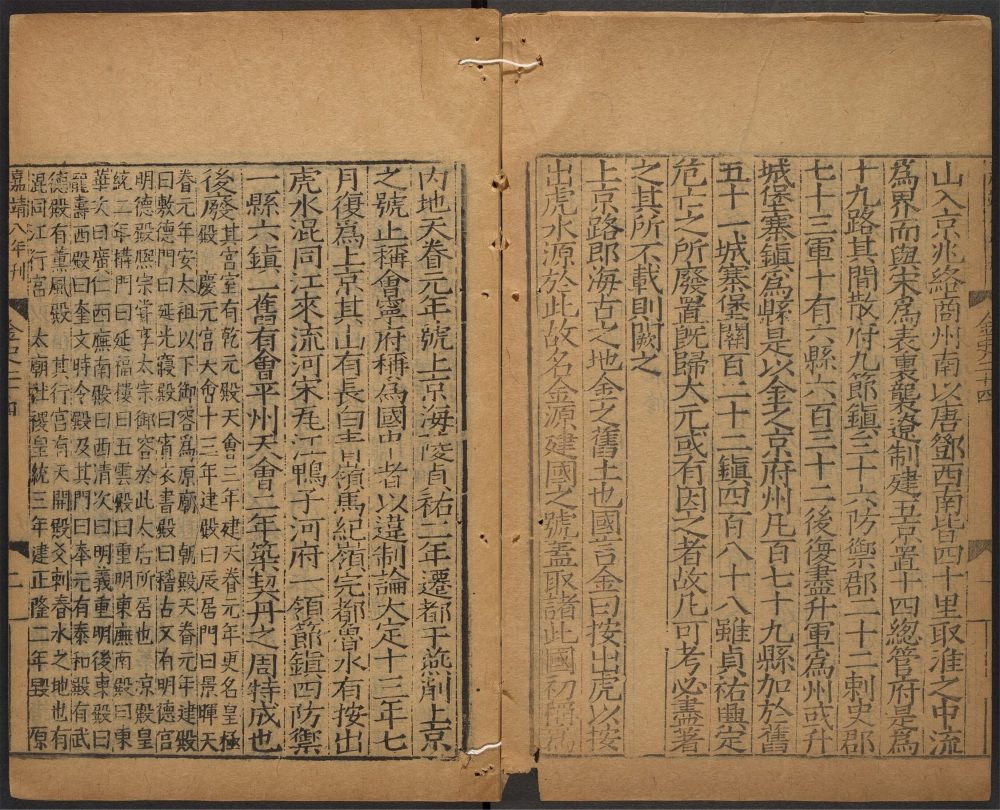 山入京兆絡商州南以唐鄧西南皆四十里取淮之中流
爲界而與宋爲表裏襲遼制建五京置十四總管府是爲
十九路其間散府九節鎭三十六防禦郡二十二刺史郡
七十三軍十有六縣六百三十二後復盡升軍爲州或升
城堡寨鎭爲縣是以金之京府州凡百七十九縣加於舊
五十一城寨堡關百二十二鎭四百八十八雖貞祐興定
危亡之所廢置旣歸大元或有因之者故凡可考必盡著
之其所不載則闕之
上京路卽海古之地金之舊土也國言金曰按出虎以按
出虎水源於此故名金源建國之號蓋取諸此國初稱爲
內地天眷元年號上京海陵貞祐二年遷都于燕削上京
之號止稱會寧府稱爲國中者以違制論大定十三年七
月復爲上京其山有長白青嶺馬紀嶺完都魯水有按出
虎水混同江來流河宋瓦江鴨子河府一領節鎭四防禦
一縣六鎭一舊有會平州天會二年築契丹之周特城也
後廢其宮室有乾元殿天會三年建天眷元年更名皇極
殿慶元宮天會十三年建殿曰辰居門曰景暉天
眷元年安太祖以下御容爲原廟朝殿天眷元年建殿
曰敷德門曰延光寢殿曰宵衣書殿曰稽古又有明德宮
明德殿熙宗嘗享太宗御容於此太后所居也涼殿皇
統二年構門曰延福樓曰五雲殿曰重明東廡南殿曰東
華次曰廣仁西廡南殿曰西清次曰明義重明後東殿曰
龍壽西殿曰奎文時令殿及其門曰奉元有泰和殿有武
德殿有薰風殿其行宮有天開殿爻剌春水之地也有
混同江行宮太廟社稷皇統三年建正隆二年毀原
嘉靖八年刊
金史二十四
二